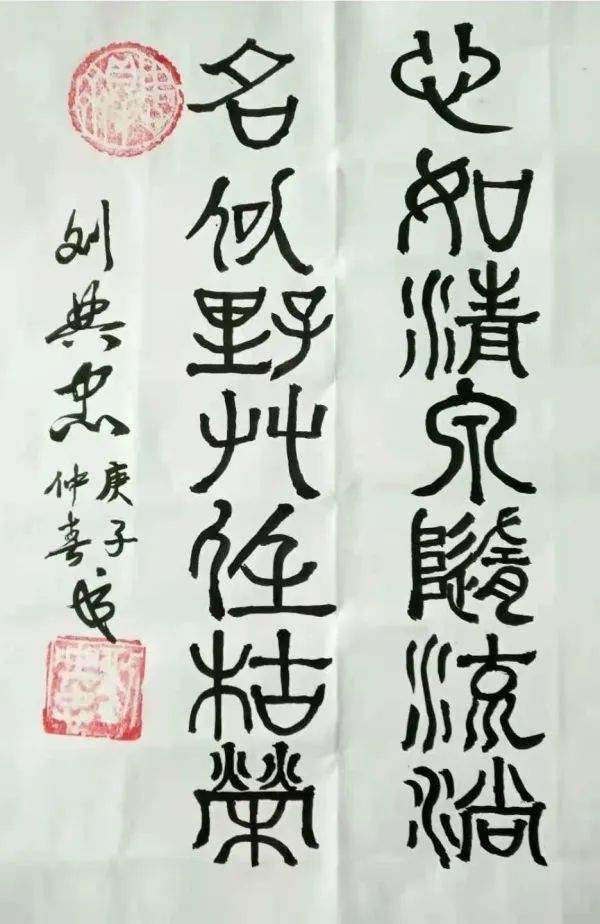 心如清泉隨流淌
名似野艸任枯榮
刘典忠
庚子
仲春书